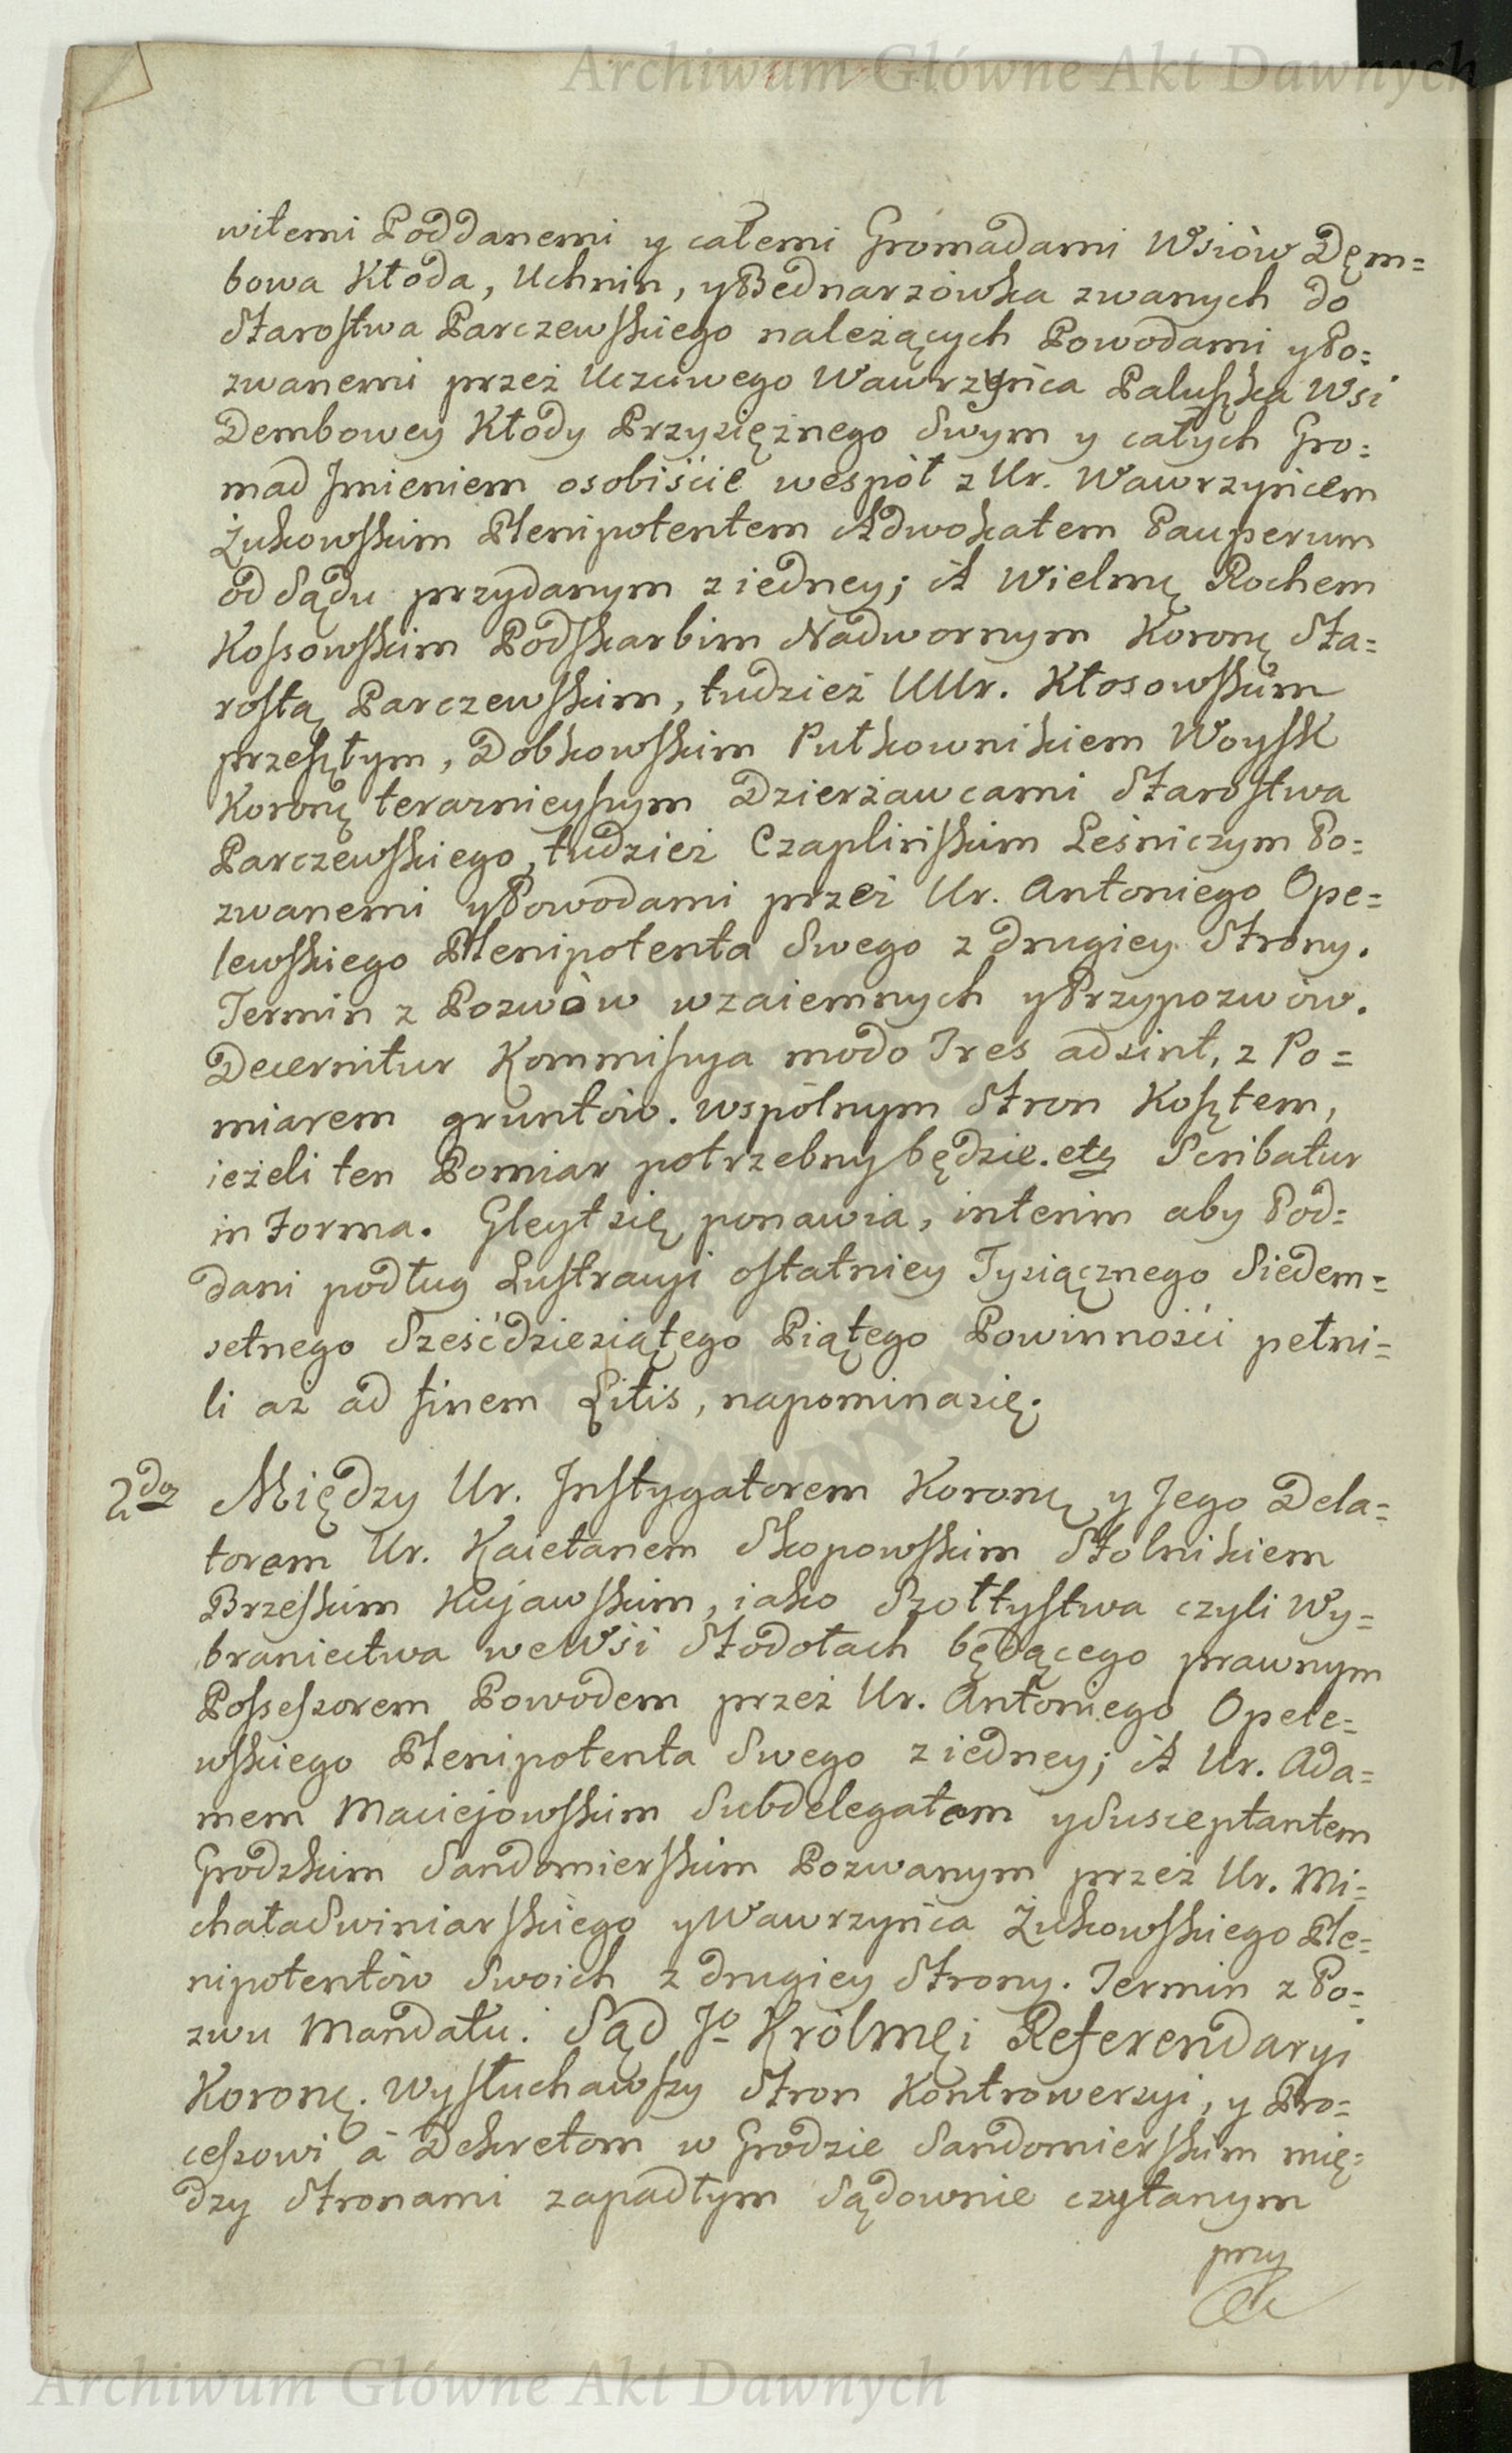 Archiwum Główne Akt Dawnych
witemi Poddanemi y całemi Gromadami Wsiòw Dęm=
bowa Kłoda, Uchnin, y Bednarzòwka zwanych do
Starostwa Parczewskiego należących Powodami y Po=
zwanemi przeż Uczciwego Wawrzyńca Paluszka Wsi
Dembowey Kłody Przysiężnego Swym y całych Gro=
mad Jmieniem osobiście wespół z Ur. Wawrzyńcem
Żukowskim Plenipotentem Adwokatem Pauperum
od Sądu przydanym z iedney; A Wielmę Rochem
Kossowskim Podskarbim Nadwornym Koronę Sta=
rostą Parczewskim, tudzież UUr. Kłosowskim
przeszłym, Dobkowskim Pułkownikiem Woysk
Koronę terarnieyszym Dzierżawcami Starostwa
Parczewskiego, tudzież Czaplińskim Leśniczym Po=
zwanemi y Powodami przeż Ur. Antoniego Ope=
lewskiego Plenipotenta Swego z drugiey Strony.
Termin z Pozwòw wzaiemnych y Przypozwòw.
Decernitur Kommissya modo Tres adsint, z Po=
miarem gruntòw. wspòlnym Stron Kosztem,
ieżeli ten Pomiar potrzebny będzie. etc Scribatur
in Forma. Gleyt się ponawia, interim aby Pod=
dani podług Lustracyi ostatniey Tysiącznego Siedem=
setnego Sześćdziesiątego Piątego Powinności pełni=
li aż ad finem Litis, napomina się.
2do Między Ur. Jnstygatorem Koronę y Jego Dela=
torem Ur. Kaietanem Skopowskim Stolnikiem
Brzeskim Kujawskim, iako Szołtystwa czyli Wy=
braniectwa we Wsi Stodołach będącego prawnym
Possessorem Powodem przeż Ur. Antoniego Opele=
wskiego Plenipotenta Swego z iedney; A Ur. Ada=
mem Maciejowskim Subdelegatem y Susceptantem
Grodzkim Sandomierskim Pozwanym przeż Ur. Mi=
chała Swiniarskiego y Wawrzyńca Żukowskiego Ple=
nipotentòw Swoich z drugiey Strony. Termin z Po=
zwu Mandatu. Sąd Jo Kròlmęi Referendaryi
Koronę. Wysłuchawszy Stron Kontrowersyi, y Pro=
cessowi à Dekretom w Grodzie Sandomierskim mię=
dzy Stronami zapadłym Sądownie czytanym
przy
Archiwum Główne Akt Dawnych